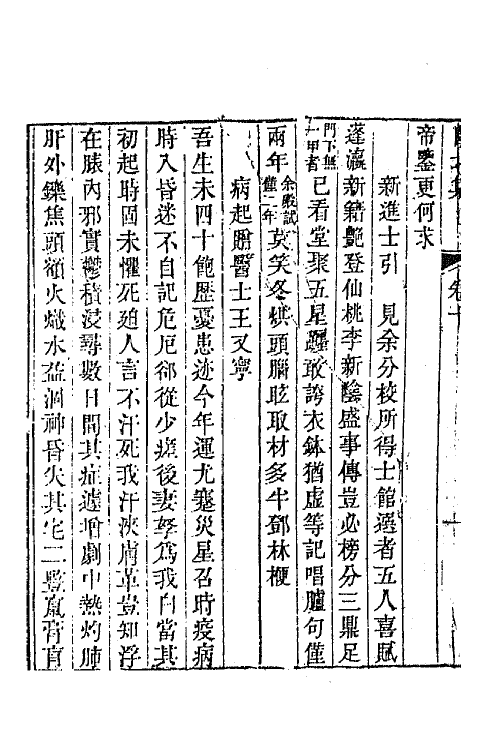 帝鑒更何求
新進士引　見余分校所得士館選者五人喜賦
蓬瀛新籍艷登仙桃李新陰盛事傳豈必榜分三鼎足
門下無一甲者已看堂聚五星躔敢誇衣鉢猶虛等記唱臚句僅
兩年余殿試僅二年莫笑冬烘頭腦眩取材多半鄧林楩
病起贈醫士王又寧
吾生未四十飽歷憂患迹今年運尤蹇災星召時疫病
時入昏迷不自記危厄卻從少瘥後妻孥為我白當其
初起時固未懼死迫人言不汗死我汗浹膚革豈知浮
在膚內邪實鬱積浸尋數日間其症遽增劇中熱灼肺
肝外鑠焦頭額火熾水益涸神昏失其宅二豎竄膏肓